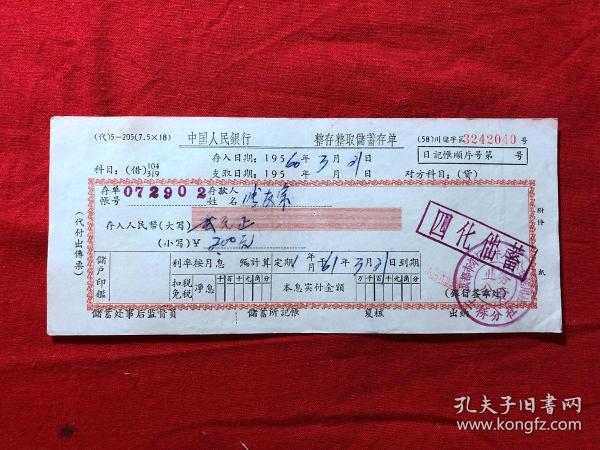 (代)5-205(7.5×18) 中国人民銀行 整存整取儲蓄存单 (58)川儲字第3242040号
存入日期:1956 60年3月31日 日記帳順序号第 号
科目:(借)104 319 支取日期:195 年 月 日 对方科目:(貸)
存单帳号 072902 存款人姓名
存入人民幣(大写) 贰元正
(小写)¥ 2.00元
四化储蓄
儲戶印鑑 利率按月息 ‰計算定期1年 月 61年3月31日到期
扣稅免稅 净息 千百十元角分 本息实付金額 万千百十元角分 (銀行签章处)
儲蓄处事后监督員 儲蓄所記帳 复核 出納
(代付出傳票)
附件 紙
桥分社
孔夫子旧书网
www.kongfz.com